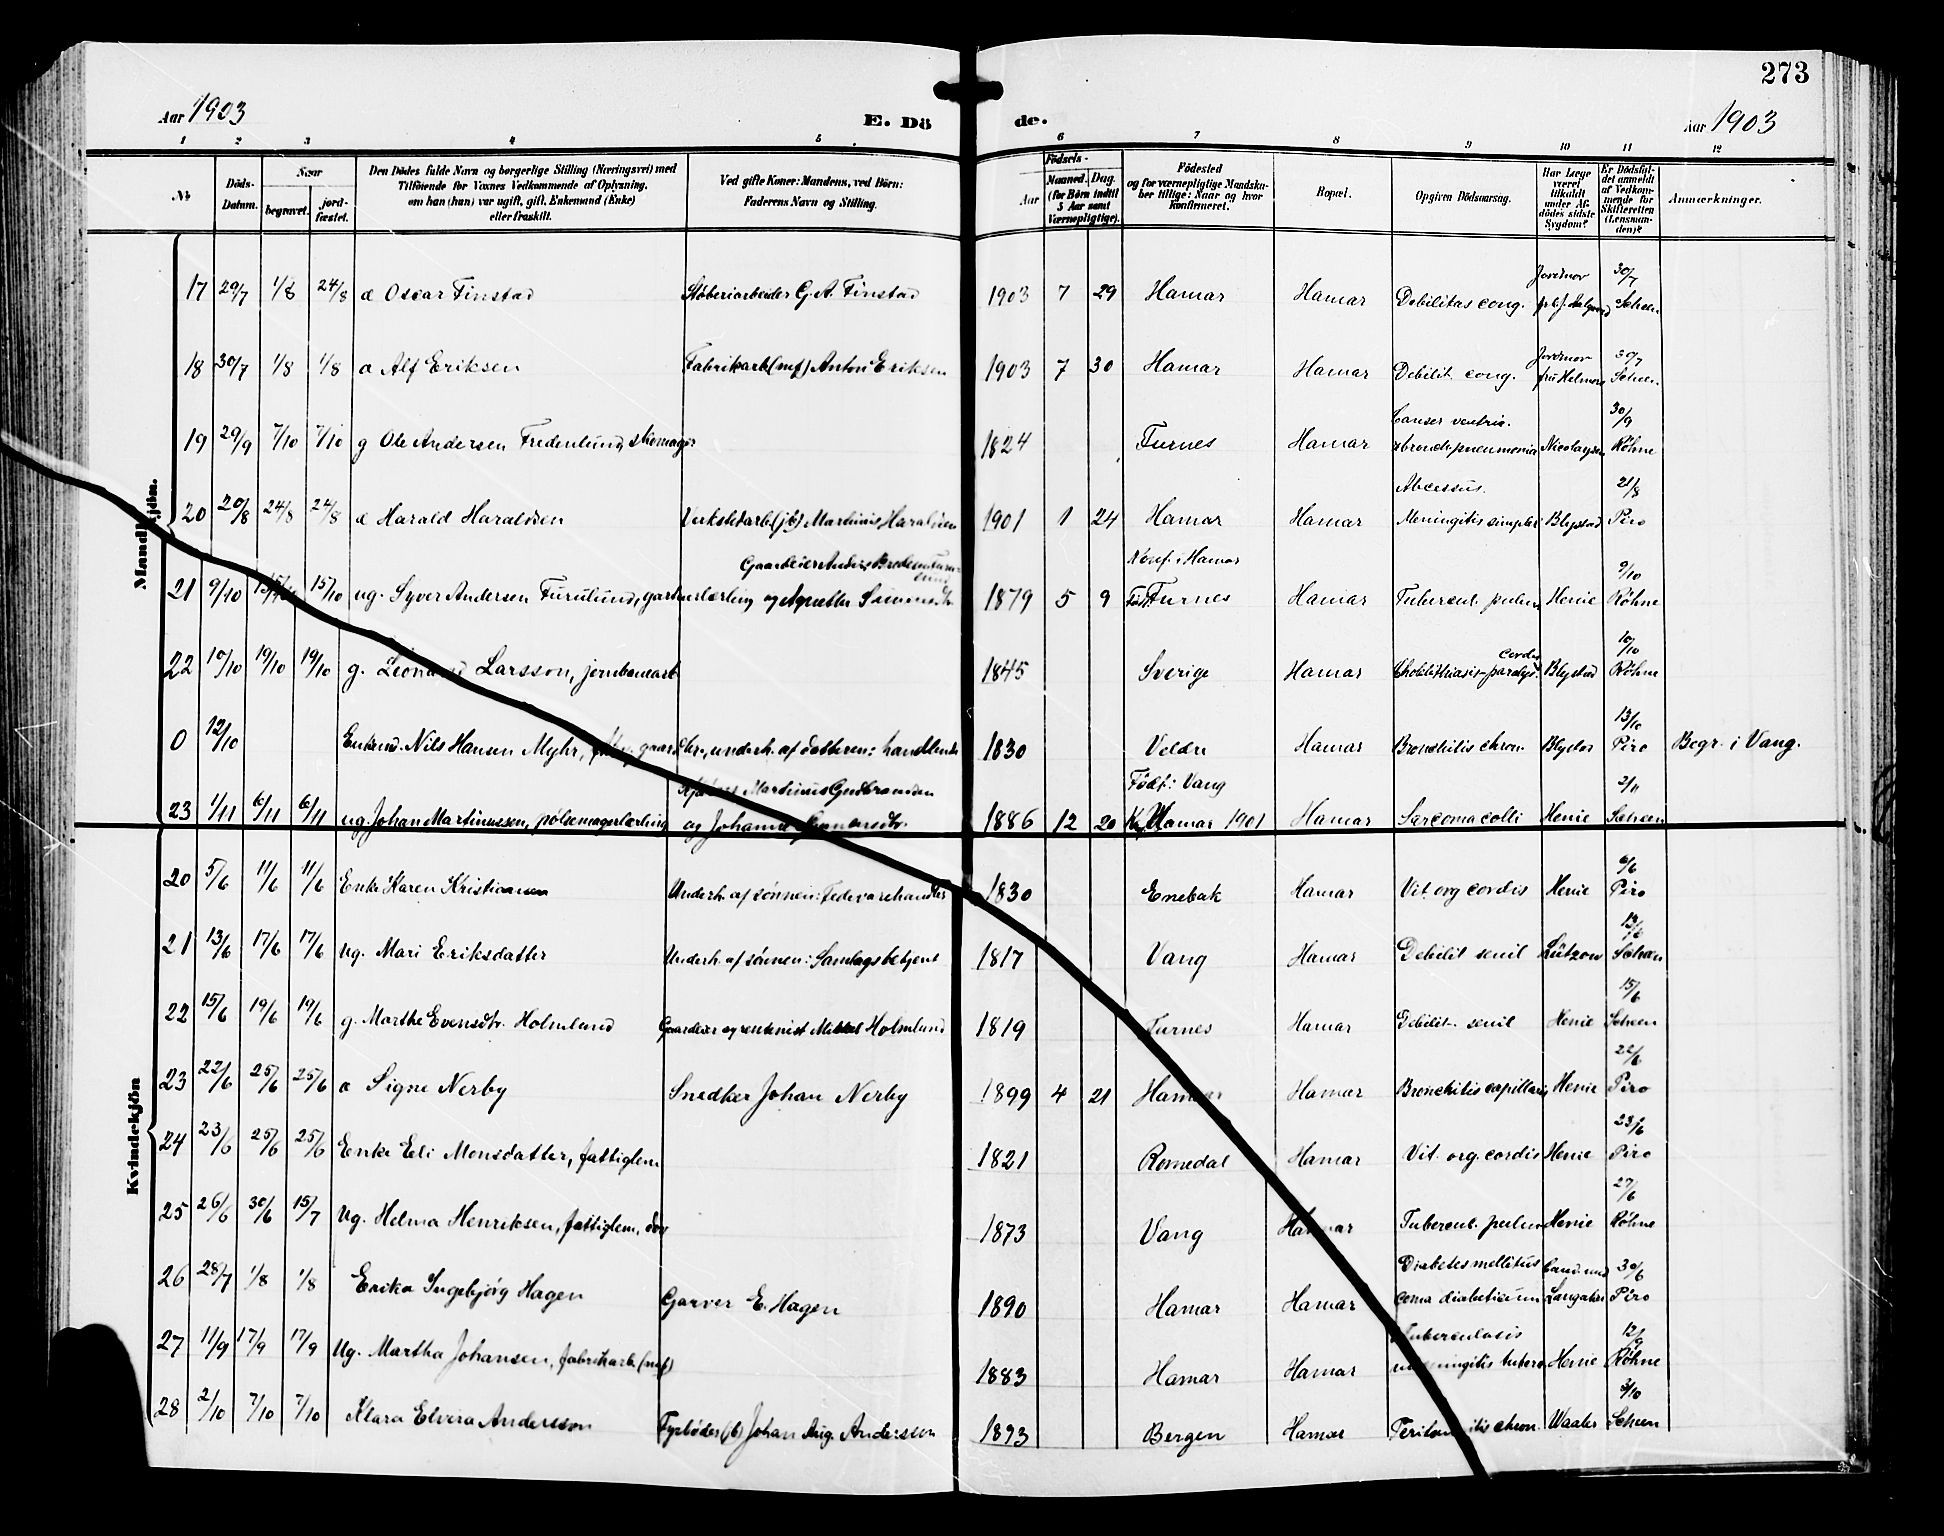 273
Aar 1903
E. Dö
de.
Aar 1903
1 2 3 4 5 6 7 8 9 10 11 12
№
Döds-Datum.
Naar
begravet.
jord-fæstet.
Den Dödes fulde Navn og borgerlige Stilling (Næringsvei) med
Tilföiende for Voxnes Vedkommende af Oplysning,
om han (hun) var ugift, gift, Enkemand (Enke)
eller fraskilt.
Ved gifte Koner: Mandens, ved Börn:
Faderens Navn og Stilling.
Födsels-
Aar
Maaned. Dag.
(for Börn indtil
5 Aar samt
Værnepligtige).
Födested
og for værnepligtige Mandska-
ber tillige: Naar og hvor
konfirmeret.
Bopæl.
Opgiven Dödsaarsag.
Har Læge
været
tilkaldt
under Af-
dödes sidste
Sygdom?
Er Dödsfal-
det anmeldt
af Vedkom-
mende for
Skifteretten
(Lensman-
den)?
Anmærkninger.
Mandkjön.
17 29/7 1/8 24/8 a Oscar Finstad Støberiarbeider G. A. Finstad 1903 7 29 Hamar Hamar Debilitas cong. Jordmor 30/7 Scheen
18 30/7 1/8 1/8 a Alf Eriksen Fabrikarb (mf) Anton Eriksen 1903 7 30 Hamar Hamar Debilit. cong. Jordmor fru Helmers 30/7 Scheen
19 29/9 7/10 7/10 g Ole Andersen Fredenlund, skomager 1824 Furnes Hamar Canser ventric. bronch. pneumonia Nicolaysen 30/9 Röhne
20 20/8 24/8 24/8 a Harald Haraldsen Verkstedarb (jb) Martinius Haraldsen 1901 1 24 Hamar Hamar Abcessus. Meningitis simplex Blystad 21/8 Piro
21 9/10 15/10 15/10 ug. Syver Andersen Furulund, gartnerlærling og Agnethe Simensdtr. 1879 5 9 Konf. i Hamar Furnes Hamar Tubercul. pulm Henie 9/10 Röhne
22 10/10 19/10 19/10 g. Leonard Larsson, jernbanearb 1845 Sverige Hamar Cholelithiasis-paralys. cordis Blystad 10/10 Röhne
0 12/10 Enkemd. Nils Hansen Myhr, underh. af datteren: handlende 1830 Veldre Hamar Bronchitis chron. 13/10 Piro Begr. i Vang.
23 1/11 6/11 6/11 ug. Johan Martinussen, pølsemagerlærling Martinus Gudbrandsen og Johanne 1886 12 20 Födt: Vang Hamar 1901 Hamar Sarcoma colli Henie 2/11 Scheen
Kvindekjön
20 5/6 11/6 11/6 Enke Karen Kristiansen Underh. af sönnen: Fedevarehandler 1830 Enebak Hamar Vit. org cordis Henie 6/6 Piro
21 13/6 17/6 17/6 Ug. Mari Eriksdatter Underh. af sönnen: Samlagsbetjent 1817 Vang Hamar Debilit senil Lützow 13/6 Scheen
22 15/6 19/6 19/6 g. Marthe Evensdtr. Holmlund Gaardeier og rentenist Mikkel Holmlund 1819 Furnes Hamar Debilit. senil Henie 15/6 Scheen
23 22/6 25/6 25/6 a Signe Nerby Snedker Johan Nerby 1899 4 21 Hamar Hamar Bronchitis capillaris Henie 22/6 Piro
24 23/6 25/6 25/6 Enke Eli Monsdatter, fattiglem 1821 Romedal Hamar Vit. org. cordis Henie 23/6 Piro
25 26/6 30/6 15/7 Ug. Helma Henriksen, fattiglem, döv 1873 Vang Hamar Tubercul. pulm Henie 27/6 Röhne
26 28/7 1/8 1/8 Erika Ingebjörg Hagen Garver E. Hagen 1890 Hamar Hamar Diabetes mellitus coma diabeticum Cand. med Langaker 30/6 Piro
27 11/9 17/9 17/9 Ug. Martha Johansen, fabrikarb (mf) 1883 Hamar Hamar Tuberculosis meningitis tuberc Henie 12/9 Röhne
28 2/10 7/10 7/10 Klara Elvira Andersson Fyrböder (jb) Johan Aug. Andersson 1893 Bergen Hamar chron. Waaler 3/10 Scheen